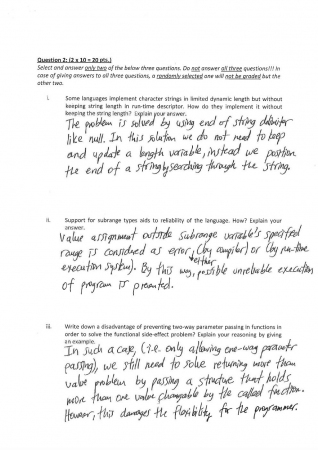 Question 2: (2 x 10 = 20 pts.)
Select and answer only two of the below three questions. Do not answer all three questions!!! In
case of giving answers to all three questions, a randomly selected one will not be graded but the
other two.
i. Some languages implement character strings in limited dynamic length but without
keeping string length in run-time descriptor. How do they implement it without
keeping the string length? Explain your answer.
The problem is solved by using end of string delimiter
like null. In this solution we do not need to keep
and update a length variable, instead we position
the end of a string by searching through the string.
ii. Support for subrange types aids to reliability of the language. How? Explain your
answer.
Value assignment outside subrange variable's specified
range is considered as error, either (by compiler) or (by run-time
execution system). By this way, possible unreliable execution
of program is prevented.
iii. Write down a disadvantage of preventing two-way parameter passing in functions in
order to solve the functional side-effect problem? Explain your reasoning by giving
an example.
In such a case, (i.e. only allowing one-way parameter
passing), we still need to solve returning more than
value problem by passing a structure that holds
more than one value changeable by the called function.
However, this damages the flexibility for the programmer.